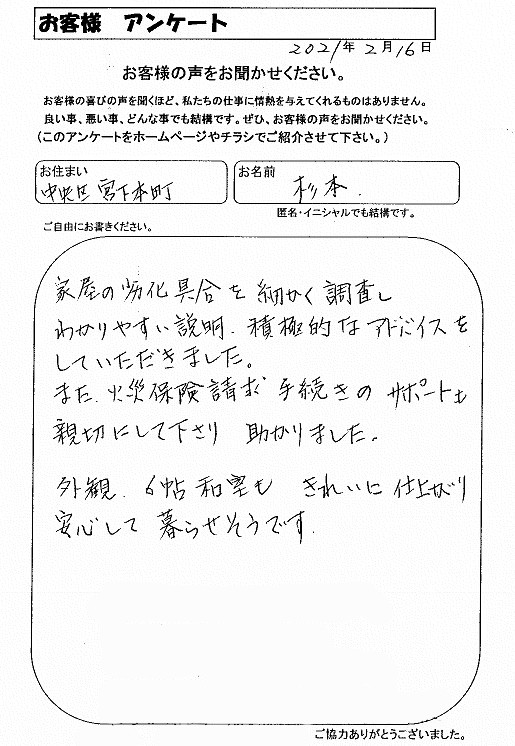 お客様 アンケート
2021年2月16日
お客様の声をお聞かせください。
お客様の喜びの声を聞くほど、私たちの仕事に情熱を与えてくれるものはありません。
良い事、悪い事、どんな事でも結構です。ぜひ、お客様の声をお聞かせください。
(このアンケートをホームページやチラシでご紹介させて下さい。)
お住まい
中央区宮下本町
お名前
杉本.
匿名・イニシャルでも結構です。
ご自由にお書きください。
家屋の劣化具合を細かく調査し
わかりやすい説明、積極的なアドバイスを
していただきました。
また、火災保険請求手続きのサポートも
親切にして下さり 助かりました。
外観、6帖和室も きれいに仕上がり
安心して暮らせそうです.
ご協力ありがとうございました。